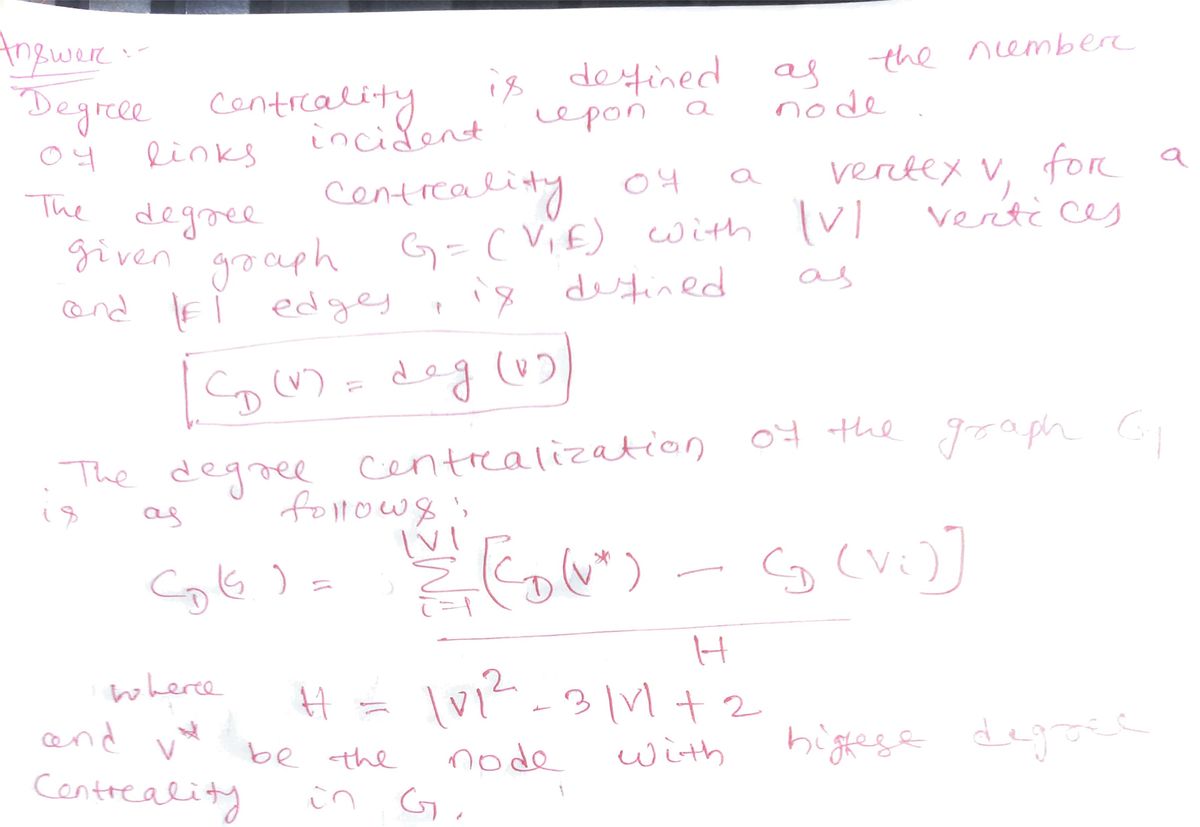 Answer :-
Degree Centrality is defined as the number
of links incident upon a node.
The degree Centrality of a vertex v, for a
given graph G = (V, E) with |V| vertices
and |E| edges, is defined as
C_D (v) = deg (v)
The degree centralization of the graph G,
is as follows;
|V|
C_D(G) = Σ [C_D(v*) - C_D(vi)]
i=1
H
where H = |V|² - 3|V| + 2
and v* be the node with highese degree
Centrality in G.